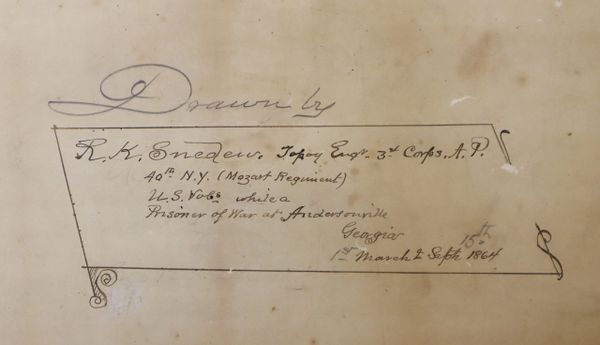 Drawn by
R. K. Sneden. Topog Engr. 3d Corps. A. P.
40th N.Y. (Mozart Regiment)
U.S. Vols while a
Prisoner of War at Andersonville
Georgia
1st March & Sept 15th 1864